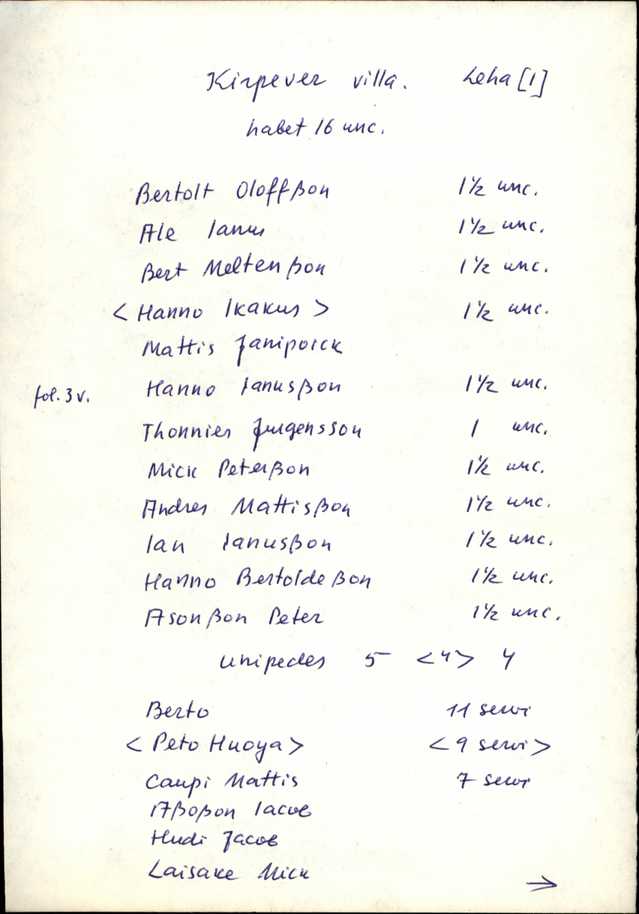 Kirpever villa. Leha [1]
habet 16 unc.
Bertolt Oloffßon 1 1/2 unc.
Ale Ianus 1 1/2 unc.
Bert Meltenßon 1 1/2 unc.
< Hanno Ikakus > 1 1/2 unc.
Mattis Janiporck
fol. 3 v. Hanno Ianusßon 1 1/2 unc.
Thonnies Jurgensson 1 unc.
Mick Peterßon 1 1/2 unc.
Andres Mattisßon 1 1/2 unc.
Ian Ianusßon 1 1/2 unc.
Hanno Bertoldeßon 1 1/2 unc.
Asonßon Peter 1 1/2 unc.
Unipedes 5 <4> 4
Berto 11 servi
< Peto Huoya > < 9 servi >
Caupi Mattis 7 servi
Aßoßon Iacob
Hudi Jacob
Laisake Mick
→